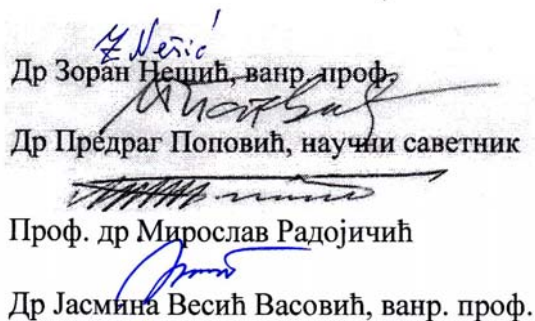 Z Nešić
Др Зоран Нешић, ванр. проф.
Др Предраг Поповић, научни саветник
Проф. др Мирослав Радојичић
Др Јасмина Весић Васовић, ванр. проф.